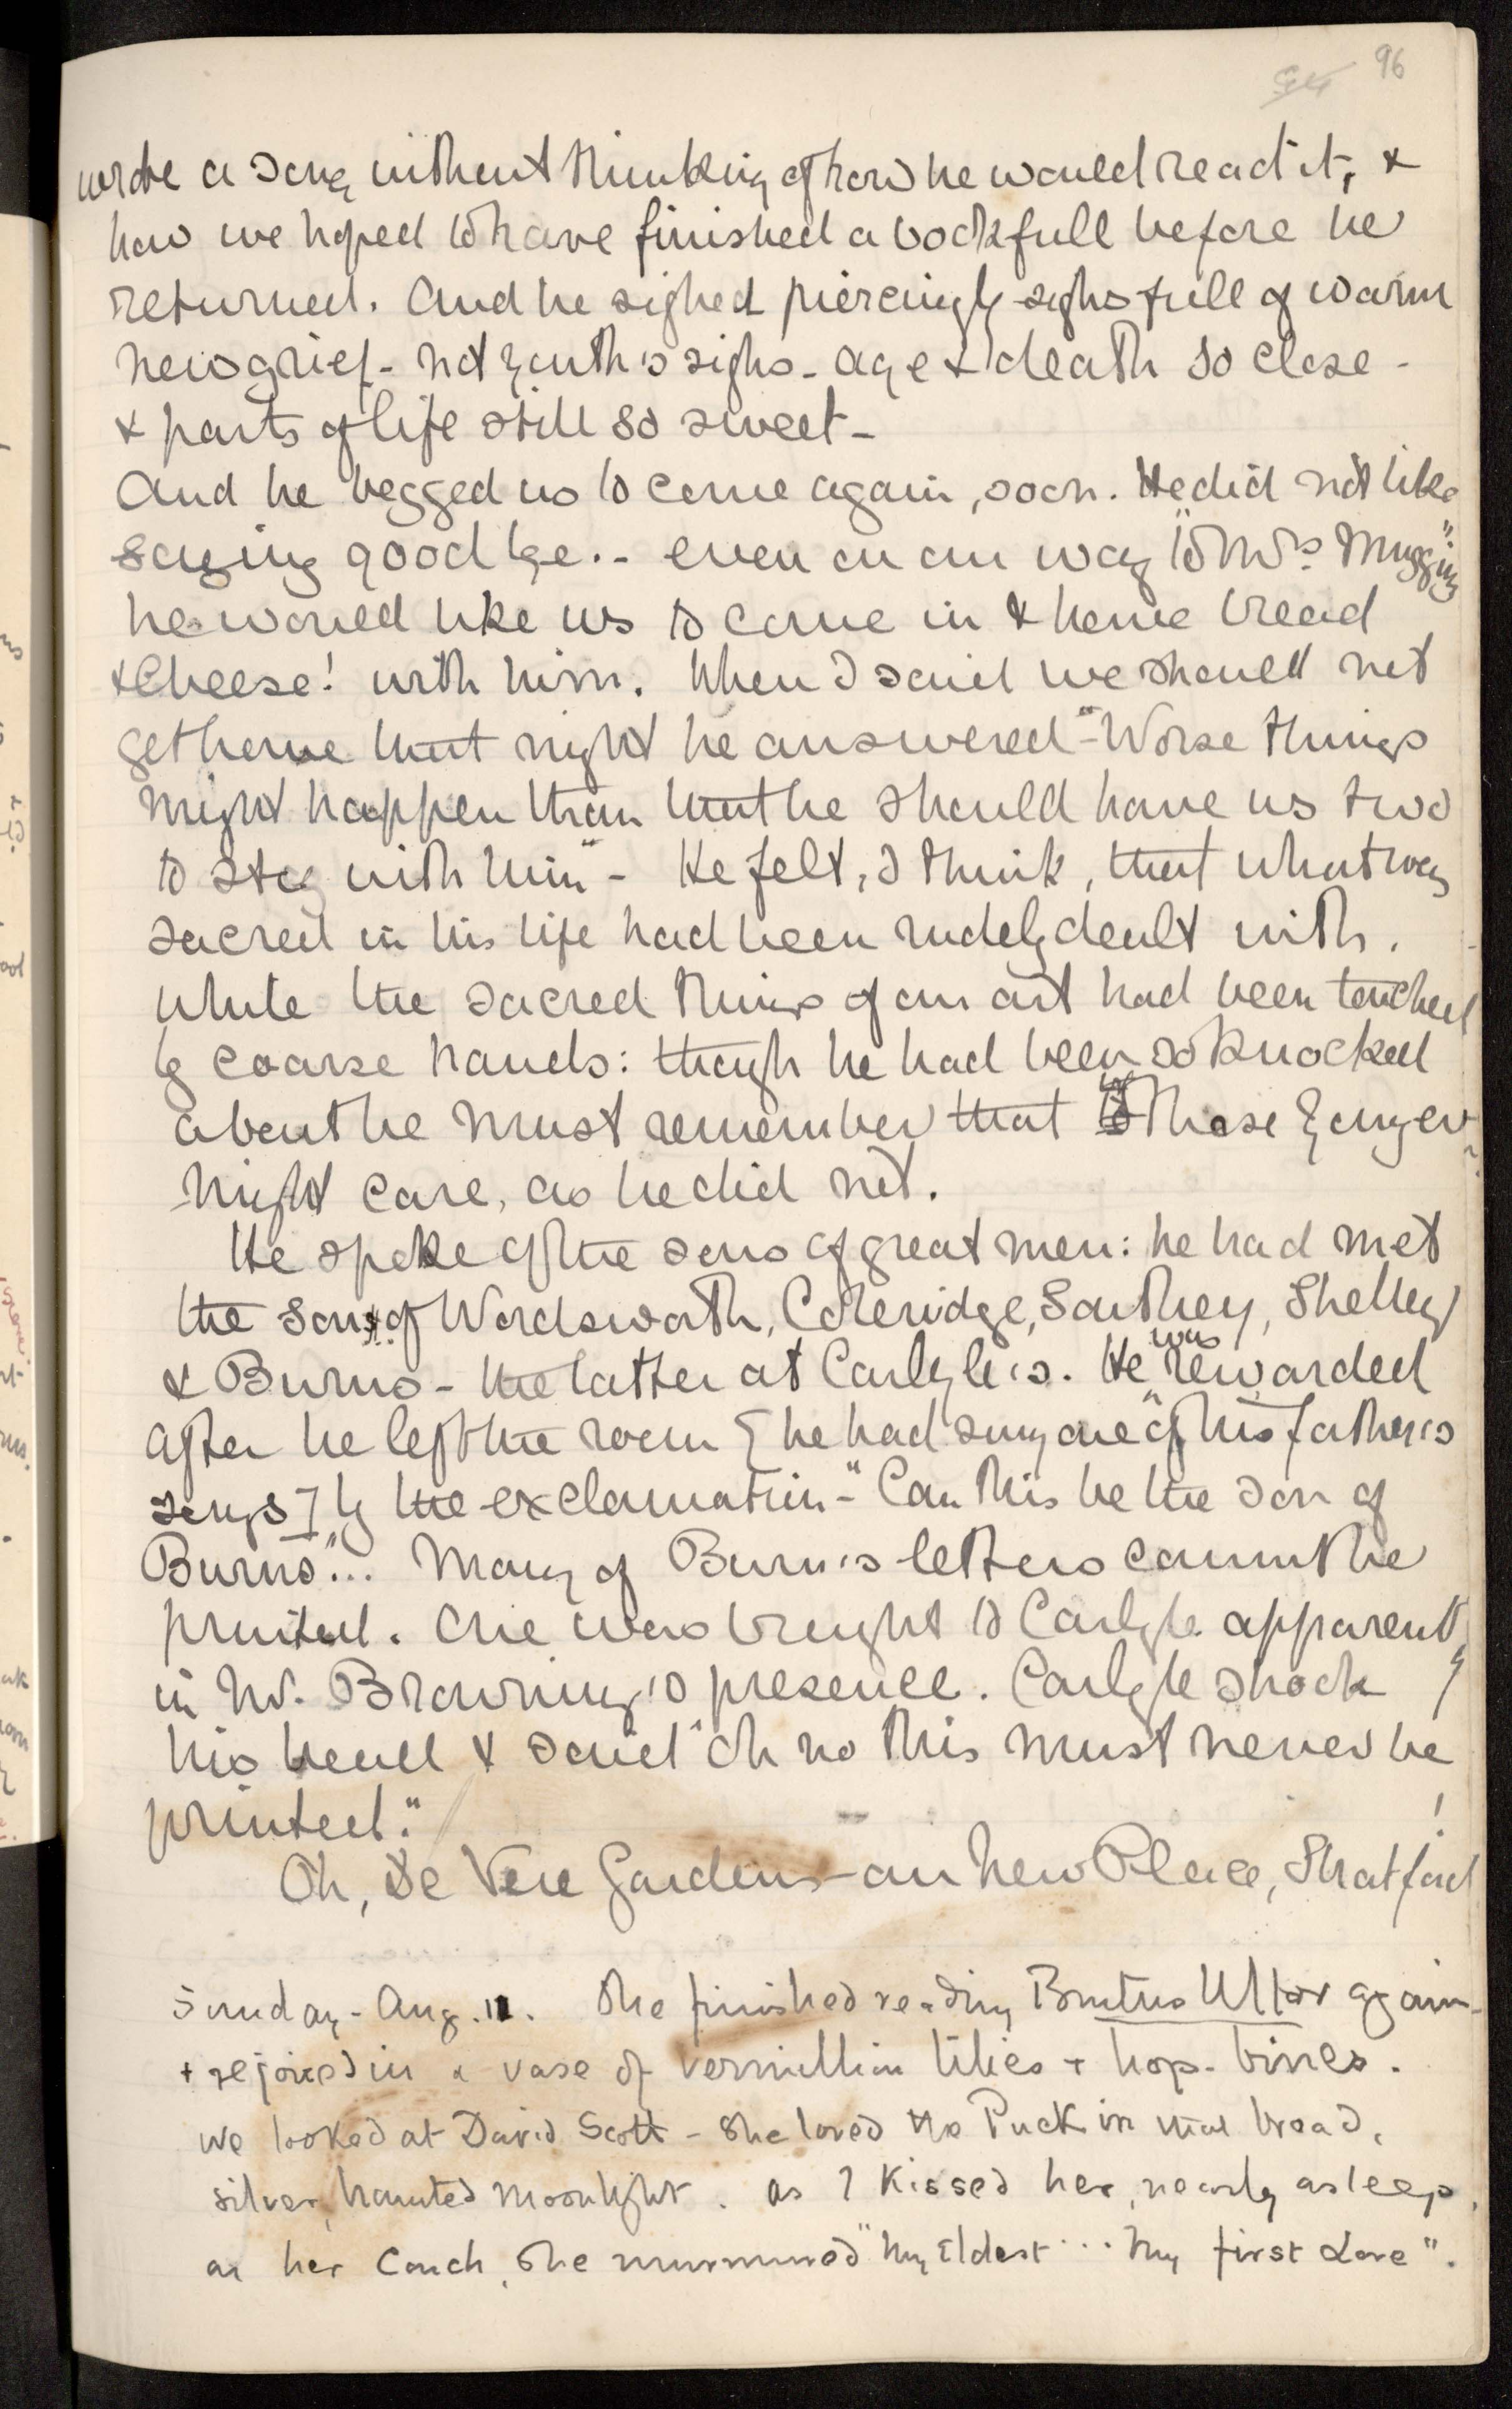 96
wrote a song without thinking of how he would read it, &
how we hoped to have finished a bookfull before he
returned. And he sighed piercingly sighs full of warm
new grief - not youth's sighs - age & death so close -
& parts of life still so sweet -
And he begged us to come again, soon. He did not like
saying good bye.- even on our way "to Mrs Muggins"
he would like us to come in & have bread
& Cheese! with him. When I said we should not
get home that night he answered - "Worse things
might happen than that he should have us two
to stay with him" - He felt, I think, that what was
sacred in his life had been rudely dealt with.
while the sacred things of our art had been touched
by coarse hands: though he had been so knocked
about he must remember that we those younger
might care, as he did not.
He spoke of the sons of great men: he had met
the sons of Wordsworth, Coleridge, Southey, Shelley
& Burns - the latter at Carlyle's. He was rewarded
after he left the room [he had sung one of his father's
songs] by the exclamation - "Can this be the son of
Burns"... Many of Burn's letters cannot be
printed. One was brought to Carlyle apparently
in Mr. Browning's presence. Carlyle shook
his head & said "Oh no this must never be
printed."
Oh, De Vere Gardens - our New Place, Stratford!
Sunday - Aug. 11. She finished reading Brutus Ultor again -
+ rejoiced in a vase of vermillion lilies + hop-bines.
We looked at David Scott - She loved the Puck in that broad,
silver, haunted moonlight. As I kissed her, nearly asleep,
on her couch, she murmured "My Eldest ... My first Love".